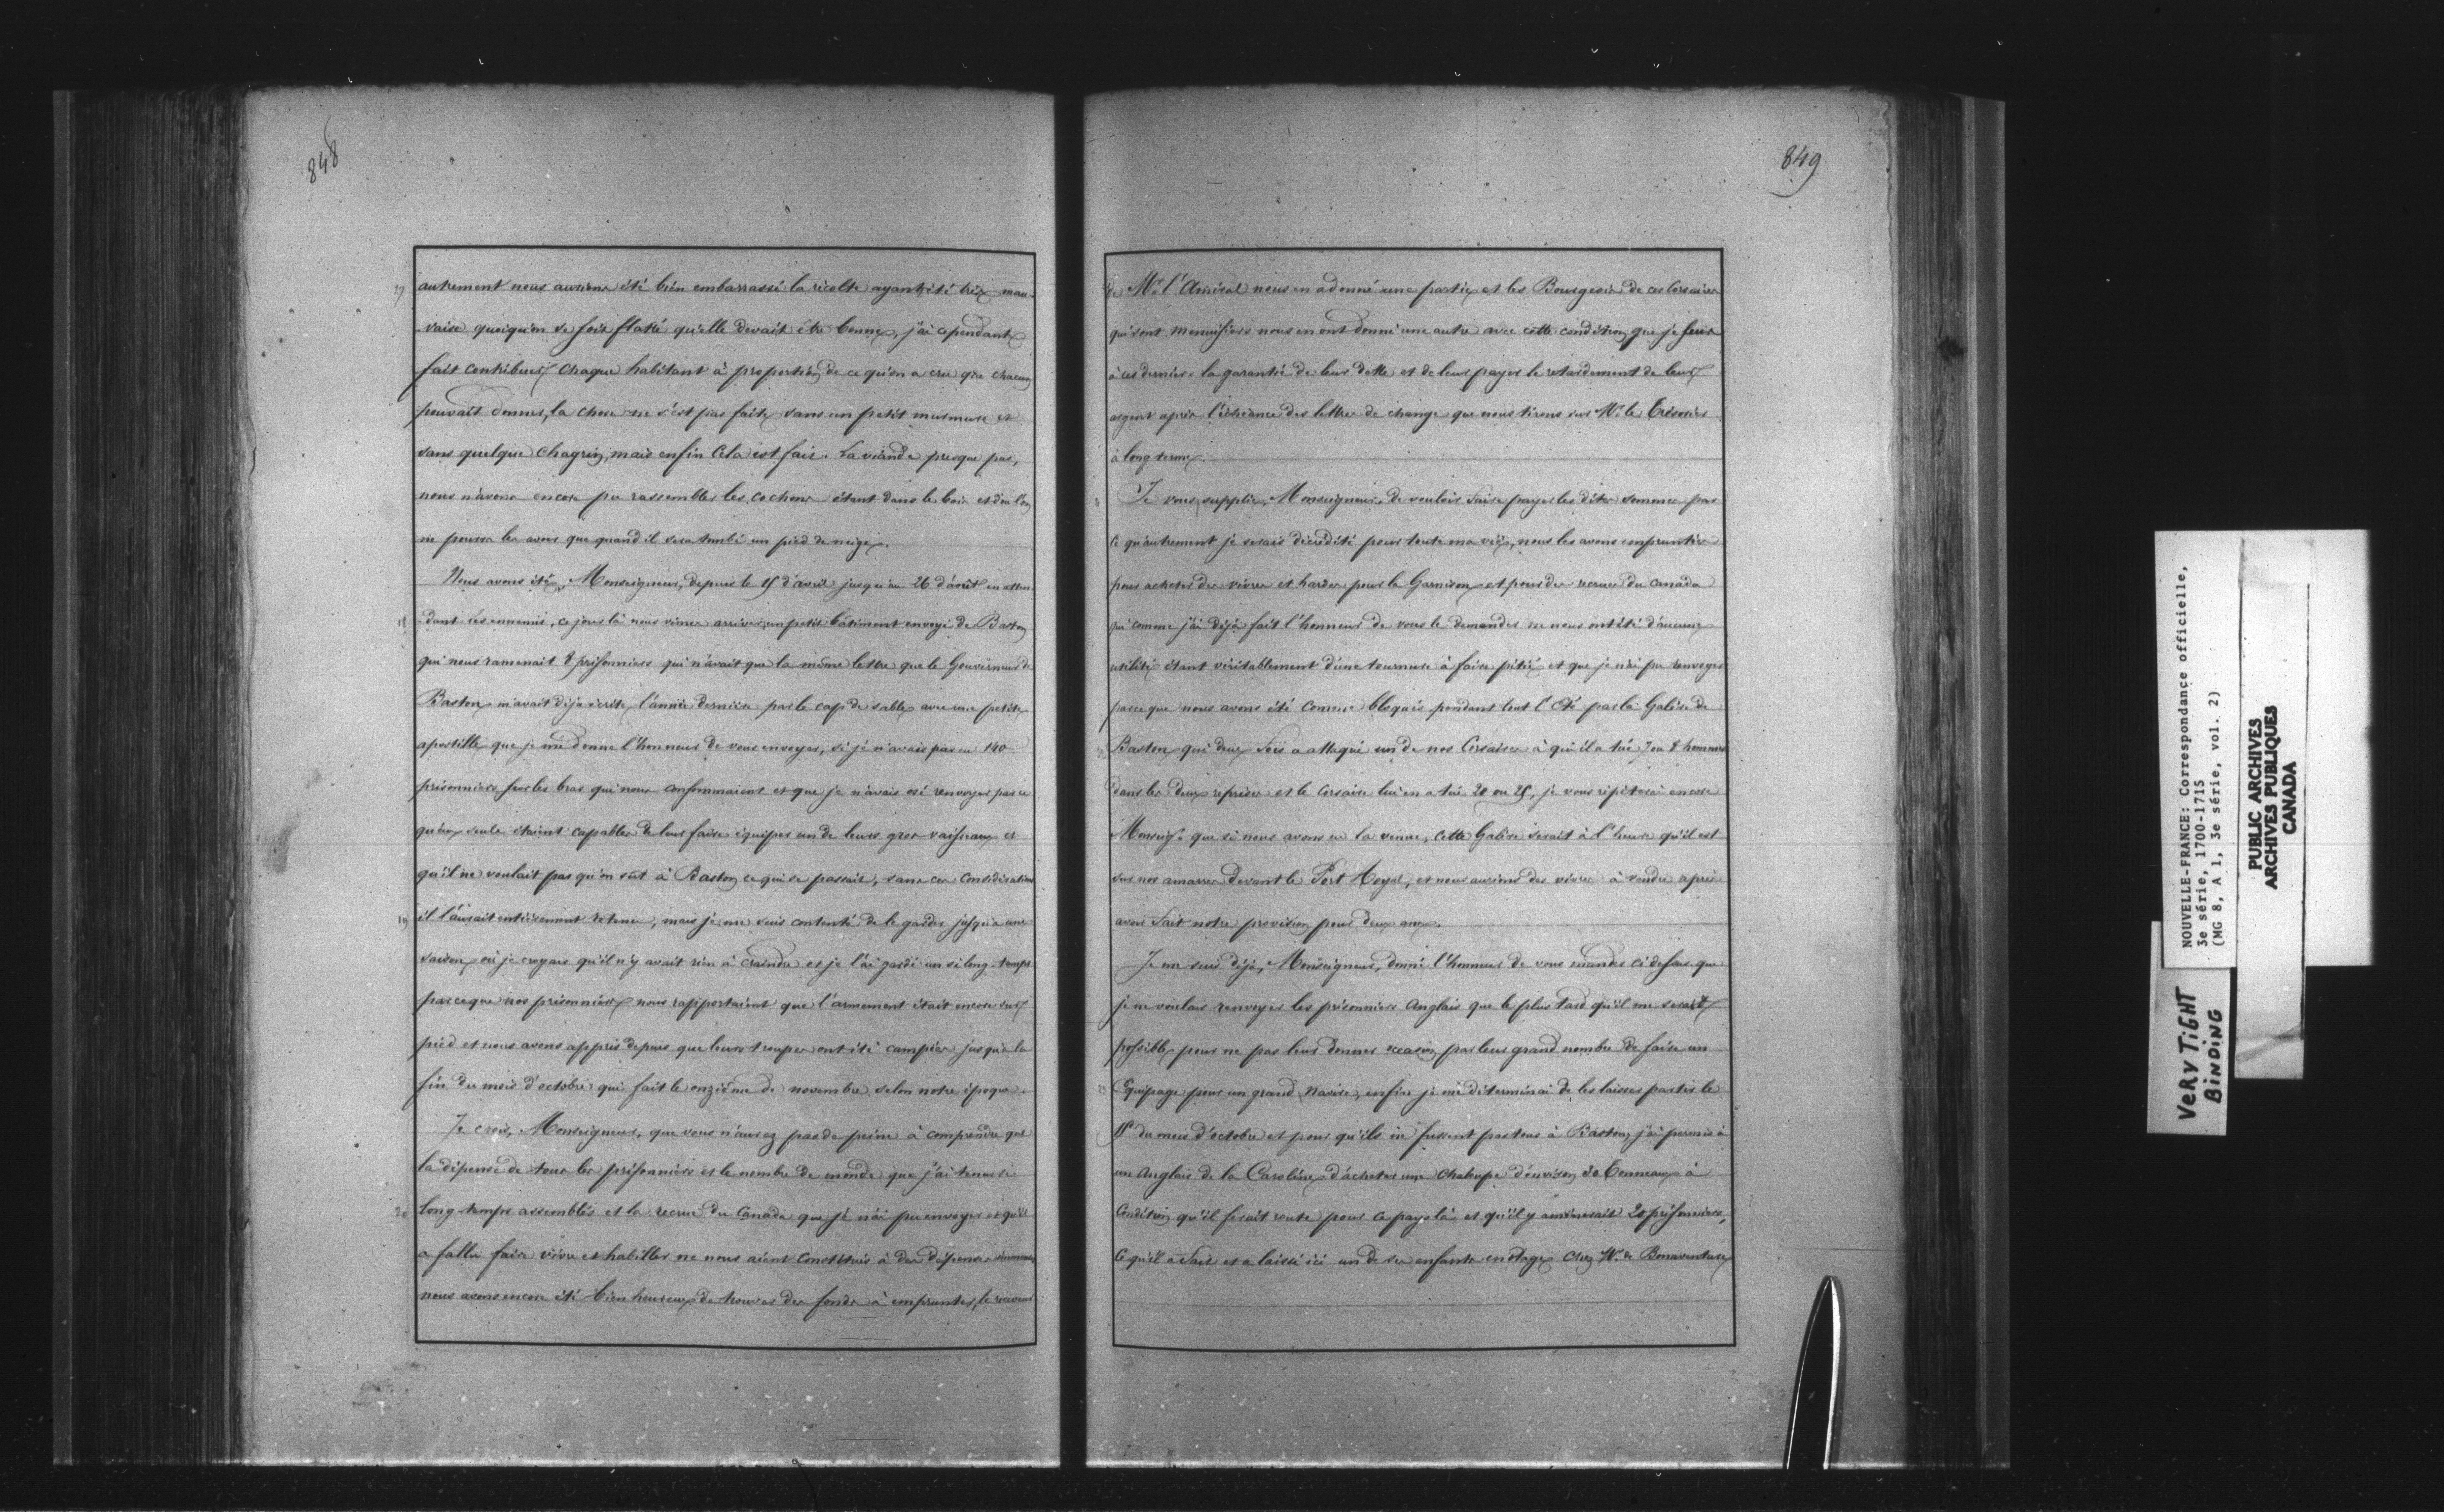 848
17
autrement nous aurions été bien embarrassé la récolte ayant été très mau-
-vaise quoiqu'on se foit flatté qu'elle devait être bonne, j'ai cependant
fait contribuer chaque habitant à proportion de ce qu'on a cru que chacun
pouvait donner, la chose ne s'est pas faite sans un petit murmure et
sans quelque chagrin, mais enfin cela est fait. La viande presque pas,
nous n'avons encore pu rassembler les cochons étant dans le bois et d'où l'on
ne pourra les avoir que quand il sera tombé un pied de neige.
Nous avons été, Monseigneur, depuis le 15 d'avril jusqu'au 26 d'août en atten-
-dant les ennemis, ce jour là nous vîmes arriver un petit bâtiment envoyé de Baston
qui nous ramenait 8 prisonniers qui n'avait que la même lettre que le Gouverneur de
Baston m'avait déjà écrite l'année dernière par le cap de sable avec une petite
apostille que je me donne l'honneur de vous envoyer, si je n'avais pas eu 140
prisonniers sur les bras qui nous consommaient et que je n'avais osé renvoyer parce
qu'eux seuls étaient capables de leur faire équiper un de leurs gros vaisseaux et
qu'il ne voulait pas qu'on sût à Baston ce qui se passait, sans ces considérations
19
il l'aurait entièrement retenu, mais je me suis contenté de le garder jusqu'à une
saison où je croyais qu'il n'y avait rien à craindre et je l'ai gardé un si long-temps
parceque nos prisonniers nous rapportaient que l'armement était encore sur
pied et nous avons appris depuis que leurs troupes ont été campées jusqu'à la
fin du mois d'octobre qui fait le onzième de novembre selon notre époque.
Je crois, Monseigneur, que vous n'aurez pas de peine à comprendre que
la dépense de tous les prisonniers et le nombre de monde que j'ai tenu si
20
long-temps assemblés et la recrue du Canada que je n'ai pu envoyer et qu'il
a fallu faire vivre et habiller ne nous aient constitués à des dépenses
nous avons encore été bien heureux de trouver des fonds à emprunter, le receveur
849
de Mr. l'Amiral nous en a donné une partie et les Bourgeois de ces Corsaires
qui sont menuisiers nous en ont donné une autre avec cette condition que je serais
à ces derniers la garantie de leur dette et de leur payer le retardement de leur
argent après l'échéance des lettres de change que nous tirons sur Mr. le Trésorier
à long terme.
Je vous supplie, Monseigneur, de vouloir faire payer les dites sommes par
ce qu'autrement je serais décrédité pour toute ma vie, nous les avons empruntées
pour acheter des vivres et hardes pour la Garnison et pour des recrues du Canada
qui comme j'ai déjà fait l'honneur de vous le demander ne nous ont été d'aucune
utilité étant véritablement d'une tournure à faire pitié et que je n'ai pu renvoyer
parce que nous avons été comme bloqués pendant tout l'Eté par la Galère de
Baston qui deux fois a attaqué un de nos Corsaires à qui il a tué 7 ou 8 hommes
dans les deux reprises et le Corsaire lui en a tué 20 ou 25, je vous répéterai encore
Monseigr. que si nous avons eu la venue, cette Galère serait à l'heure qu'il est
sur nos amarres devant le Port Royal, et nous aurions des vivres à vendre après
avoir fait notre provision pour deux ans.
Je me suis déjà, Monseigneur, donné l'honneur de vous mander ci dessus que
je ne voulais renvoyer les prisonniers Anglais que le plus tard qu'il me serait
possible pour ne pas leur donner occasion par leur grand nombre de faire un
Equipage pour un grand Navire, enfin je me déterminai de les laisser partir le
15 du mois d'octobre et pour qu'ils ne fussent pas tous à Baston, j'ai permis à
un Anglais de la Caroline d'acheter une chaloupe d'environ 30 Tonneaux à
Condition qu'il ferait route pour ce pays là et qu'il y amènerait 20 prisonniers,
ce qu'il a fait et a laissé ici un de ses enfants en otage chez Mr. de Bonaventure
NOUVELLE-FRANCE: Correspondance officielle,
3e série, 1700-1715
(MG 8, A 1, 3e série, vol. 2)
PUBLIC ARCHIVES
ARCHIVES PUBLIQUES
CANADA
VERY TIGHT
BINDING